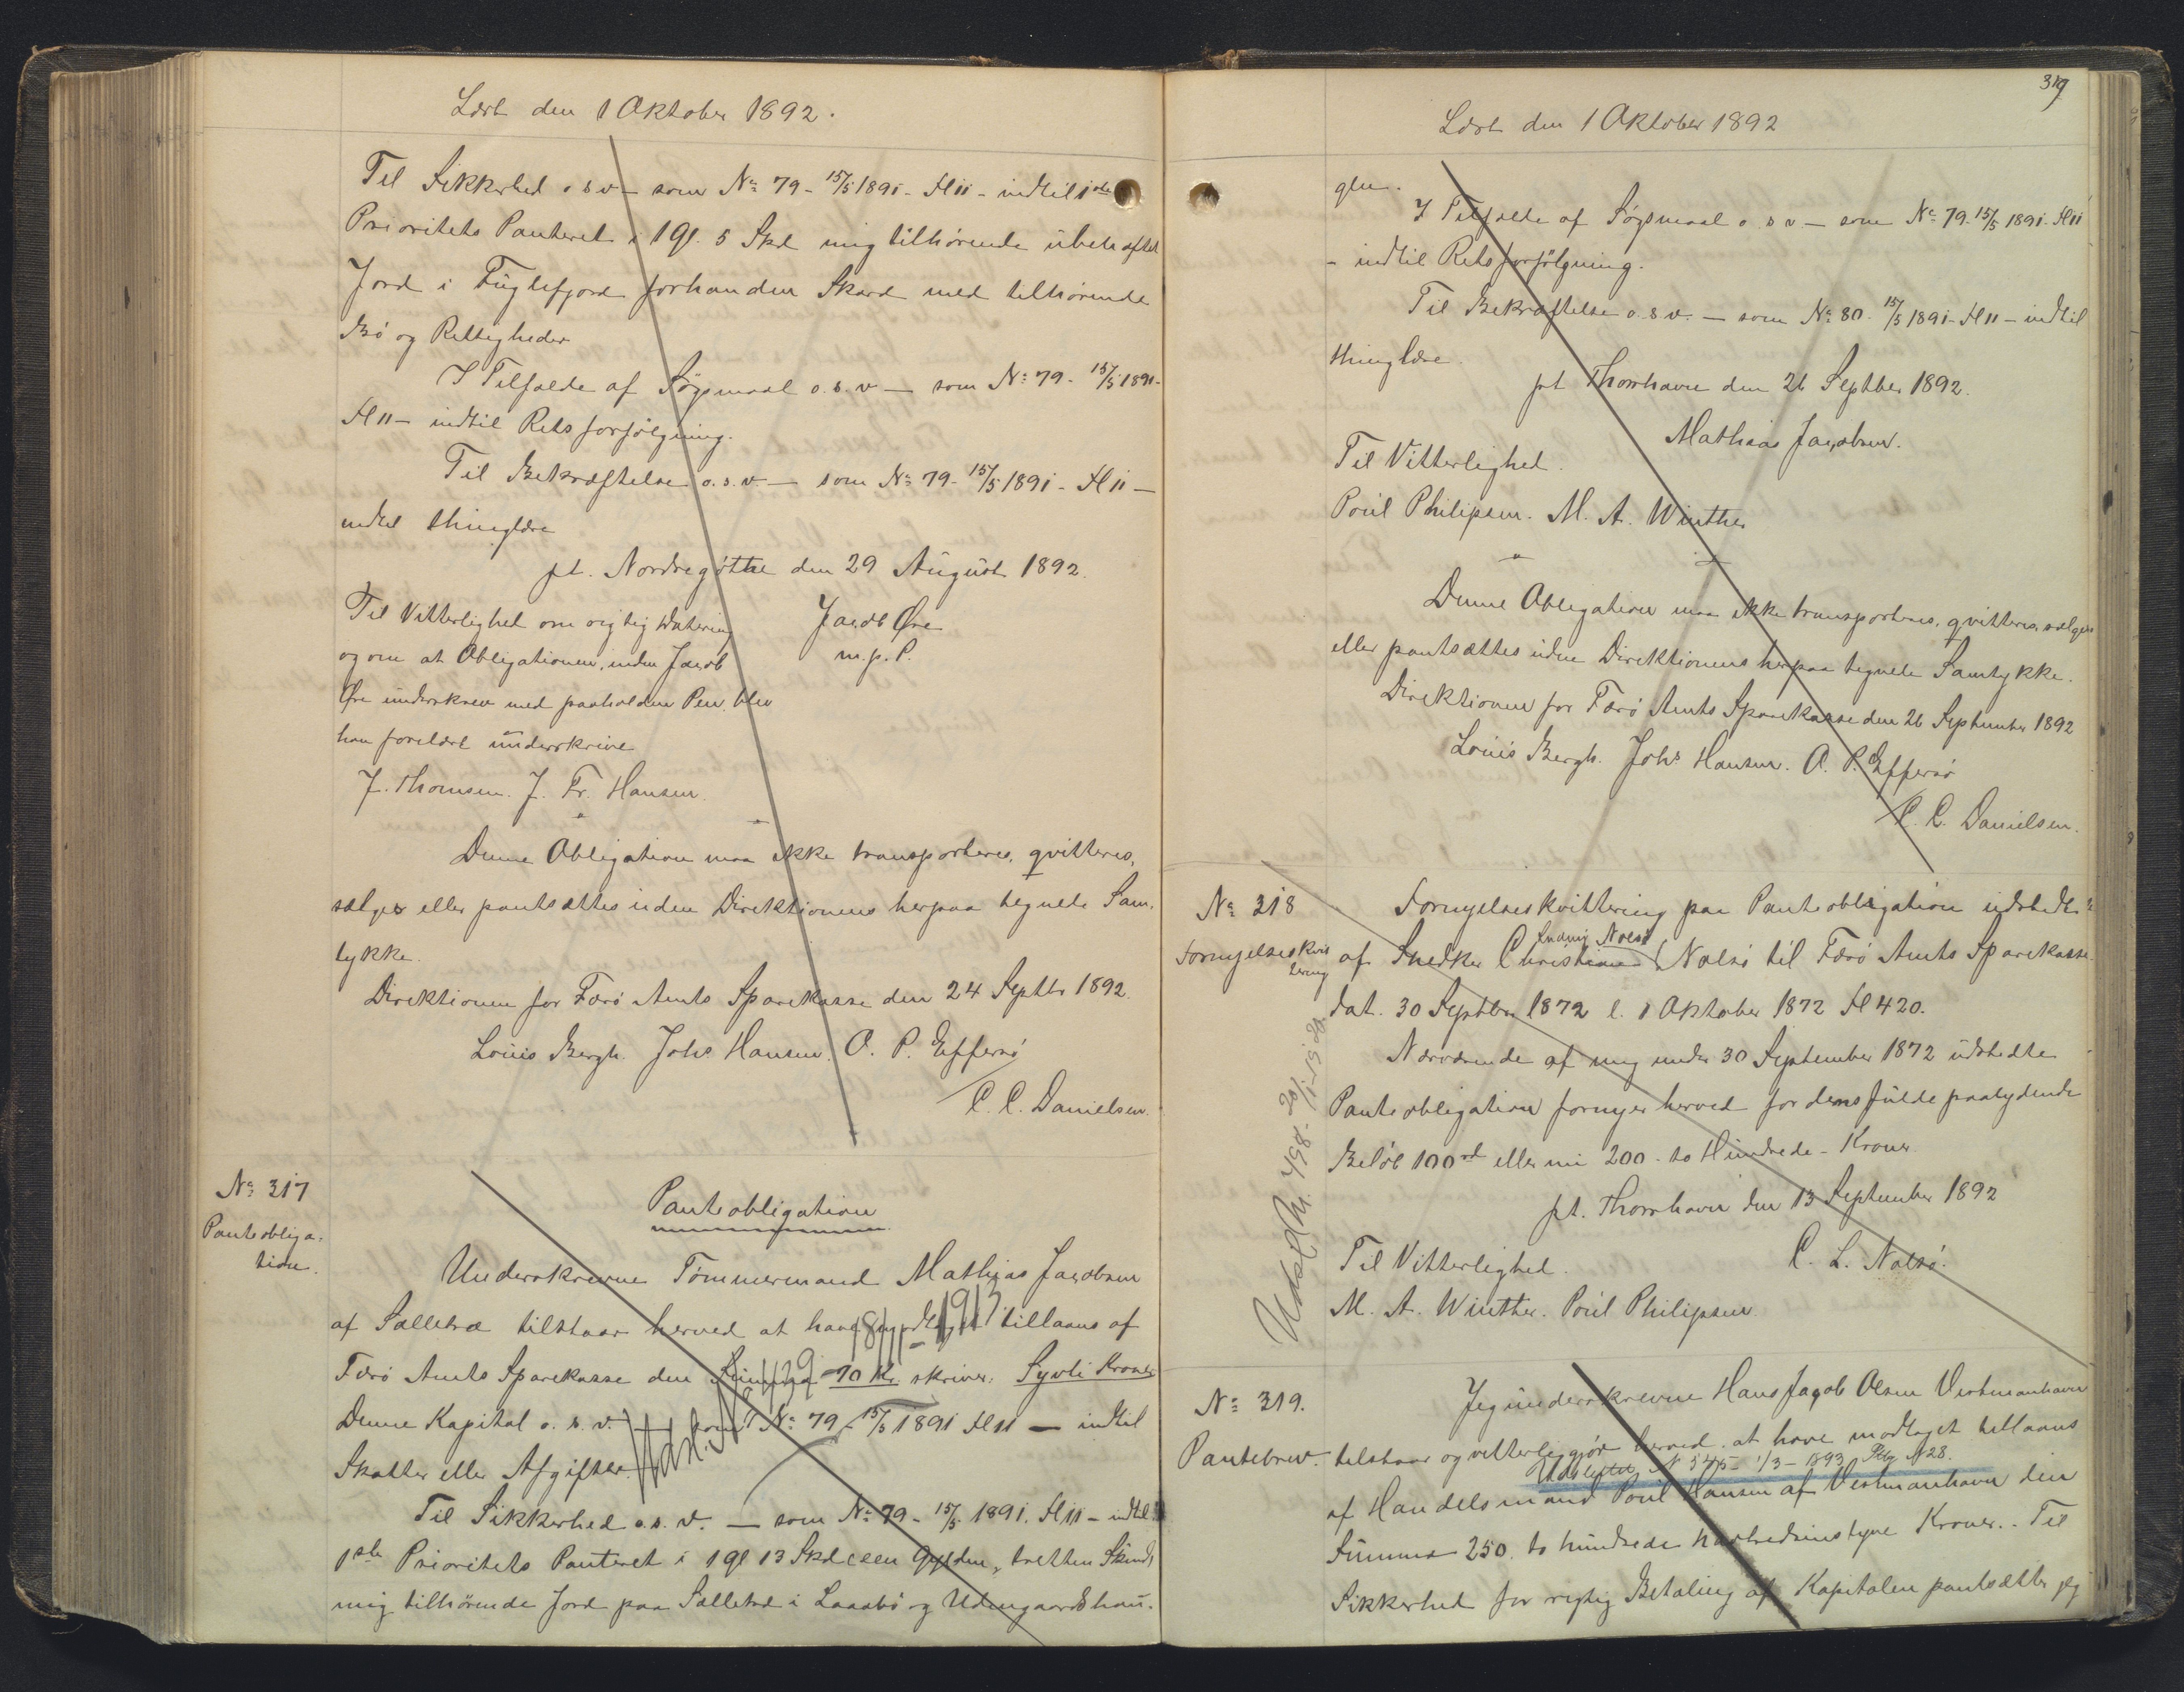 Læst den 1 Oktober 1892.
Til Sikkerhed o s v – som No 79 - 15/5 1891 - fl 11 - indtil 1ste
Prioritets Panteret i 1 Gl. 5 Skd mig tilhørende übehæftet
Jord i Füglefjord forhanden Skard med tilhørende
Bö og Rettigheder
I Tilfælde af Søgsmaal o. s. v – som No 79 - 15/5 1891 -
fl 11 – indtil Retsforfølgning.
Til Bekræftelse o. s. v. – som No 79 - 15/5 1891 - fl 11 –
indtil thinglæse
pt. Nordregøthe den 29 Aügüst 1892.
Til Vitterlighed om rigtig Datering Jacob Øre
og om at Obligationen, inden Jacob m. p. P.
Øre ünderskrev med paaholden Pen, blev
ham forelæst ünderskrive
J. Thomsen. J. Fr. Hansen.
Denne Obligation maa ikke transporteres, qvitteres,
sælges eller pantsættes üden Direktionens herpaa tegnede Sam-
tykke.
Direktionen for Færö Amts Sparekasse den 24 Septbr 1892.
Loüis Bergh. Johs Hansen. O. P. Effersö
/ C. C. Danielsen.
No 317
Panteobliga-
tion.
Panteobligation
Underskrevne Tømmermand Mathias Jacobsen
af Selletræ tilstaar herved at have modtaget tillaans af
Færö Amts Sparekasse den Summa 70 Kr. skriver: Syvti Kroner
Denne Kapital o. s. v. – som No 79 - 15/5 1891 fl 11 — indtil
Skatter eller Afgifter.
Til Sikkerhed o. s. v. — som No 79 - 15/5 1891. fl 11 - indtil
1ste Prioritets Panteret i 1 gl 13 Skd (een Gylden, tretten Skind)
mig tilhørende Jord paa Selletræ i Laaabö og Udengaardshaü-
319
Læst den 1 Oktober 1892
gen.
I Tilfælde af Søgsmaal o. s v – som No 79. 15/5 1891. fl 11
– indtil Retsforfølgning.
Til Bekræftelse o. s v. — som No 80. 15/5 1891 - fl 11 – indtil
thinglæse.
pt Thorshavn den 26 Septber 1892.
Mathias Jacobsen.
Til Vitterlighed.
Poül Philipsen. M. A. Winther
Denne Obligation maa ikke transporteres, qvitteres, sælges
eller pantsættes üden Direktionens herpaa tegnede Samtykke.
Direktionen for Færö Amts Sparekasse den 26 September 1892
Loüis Bergh. Johs Hansen. O. P. Effersö
/ C. C. Danielsen.
No 318
Fornyelseskvit
tering
Fornyelseskvittering paa Panteobligation udstedt
Ludvig Nolsö
af Snedker Christian Nolsö til Færö Amts Sparekasse
dat. 30 Septbr 1872 l. 1 Oktober 1872 fl 420.
Nærværende af mig under 30 September 1872 üdstedte
Panteobligation fornyes herved for dens fülde paalydende
Beløb 100 rd eller nü 200 - to Hündrede - Kroner
pt. Thorshavn den 13 September 1892
Til Vitterlighed. C. L. Nolsö.
M. A. Winther. Poül Philipsen
No 319.
Pantebrev.
Jeg ünderskrevne Hans Jacob Olsen Vestmanhavn
tilstaar og vitterliggjør herved at have modtaget tillaans
Udslettet N 545 - 1/3 - 1893 N 28.
af Handelsmand Poül Hansen af Vestmanhavn den
Sümma 250. to hündrede halvtredsindstyve Kroner. Til
Sikkerhed for rigtig Betaling af Kapitalen pantsætter jeg